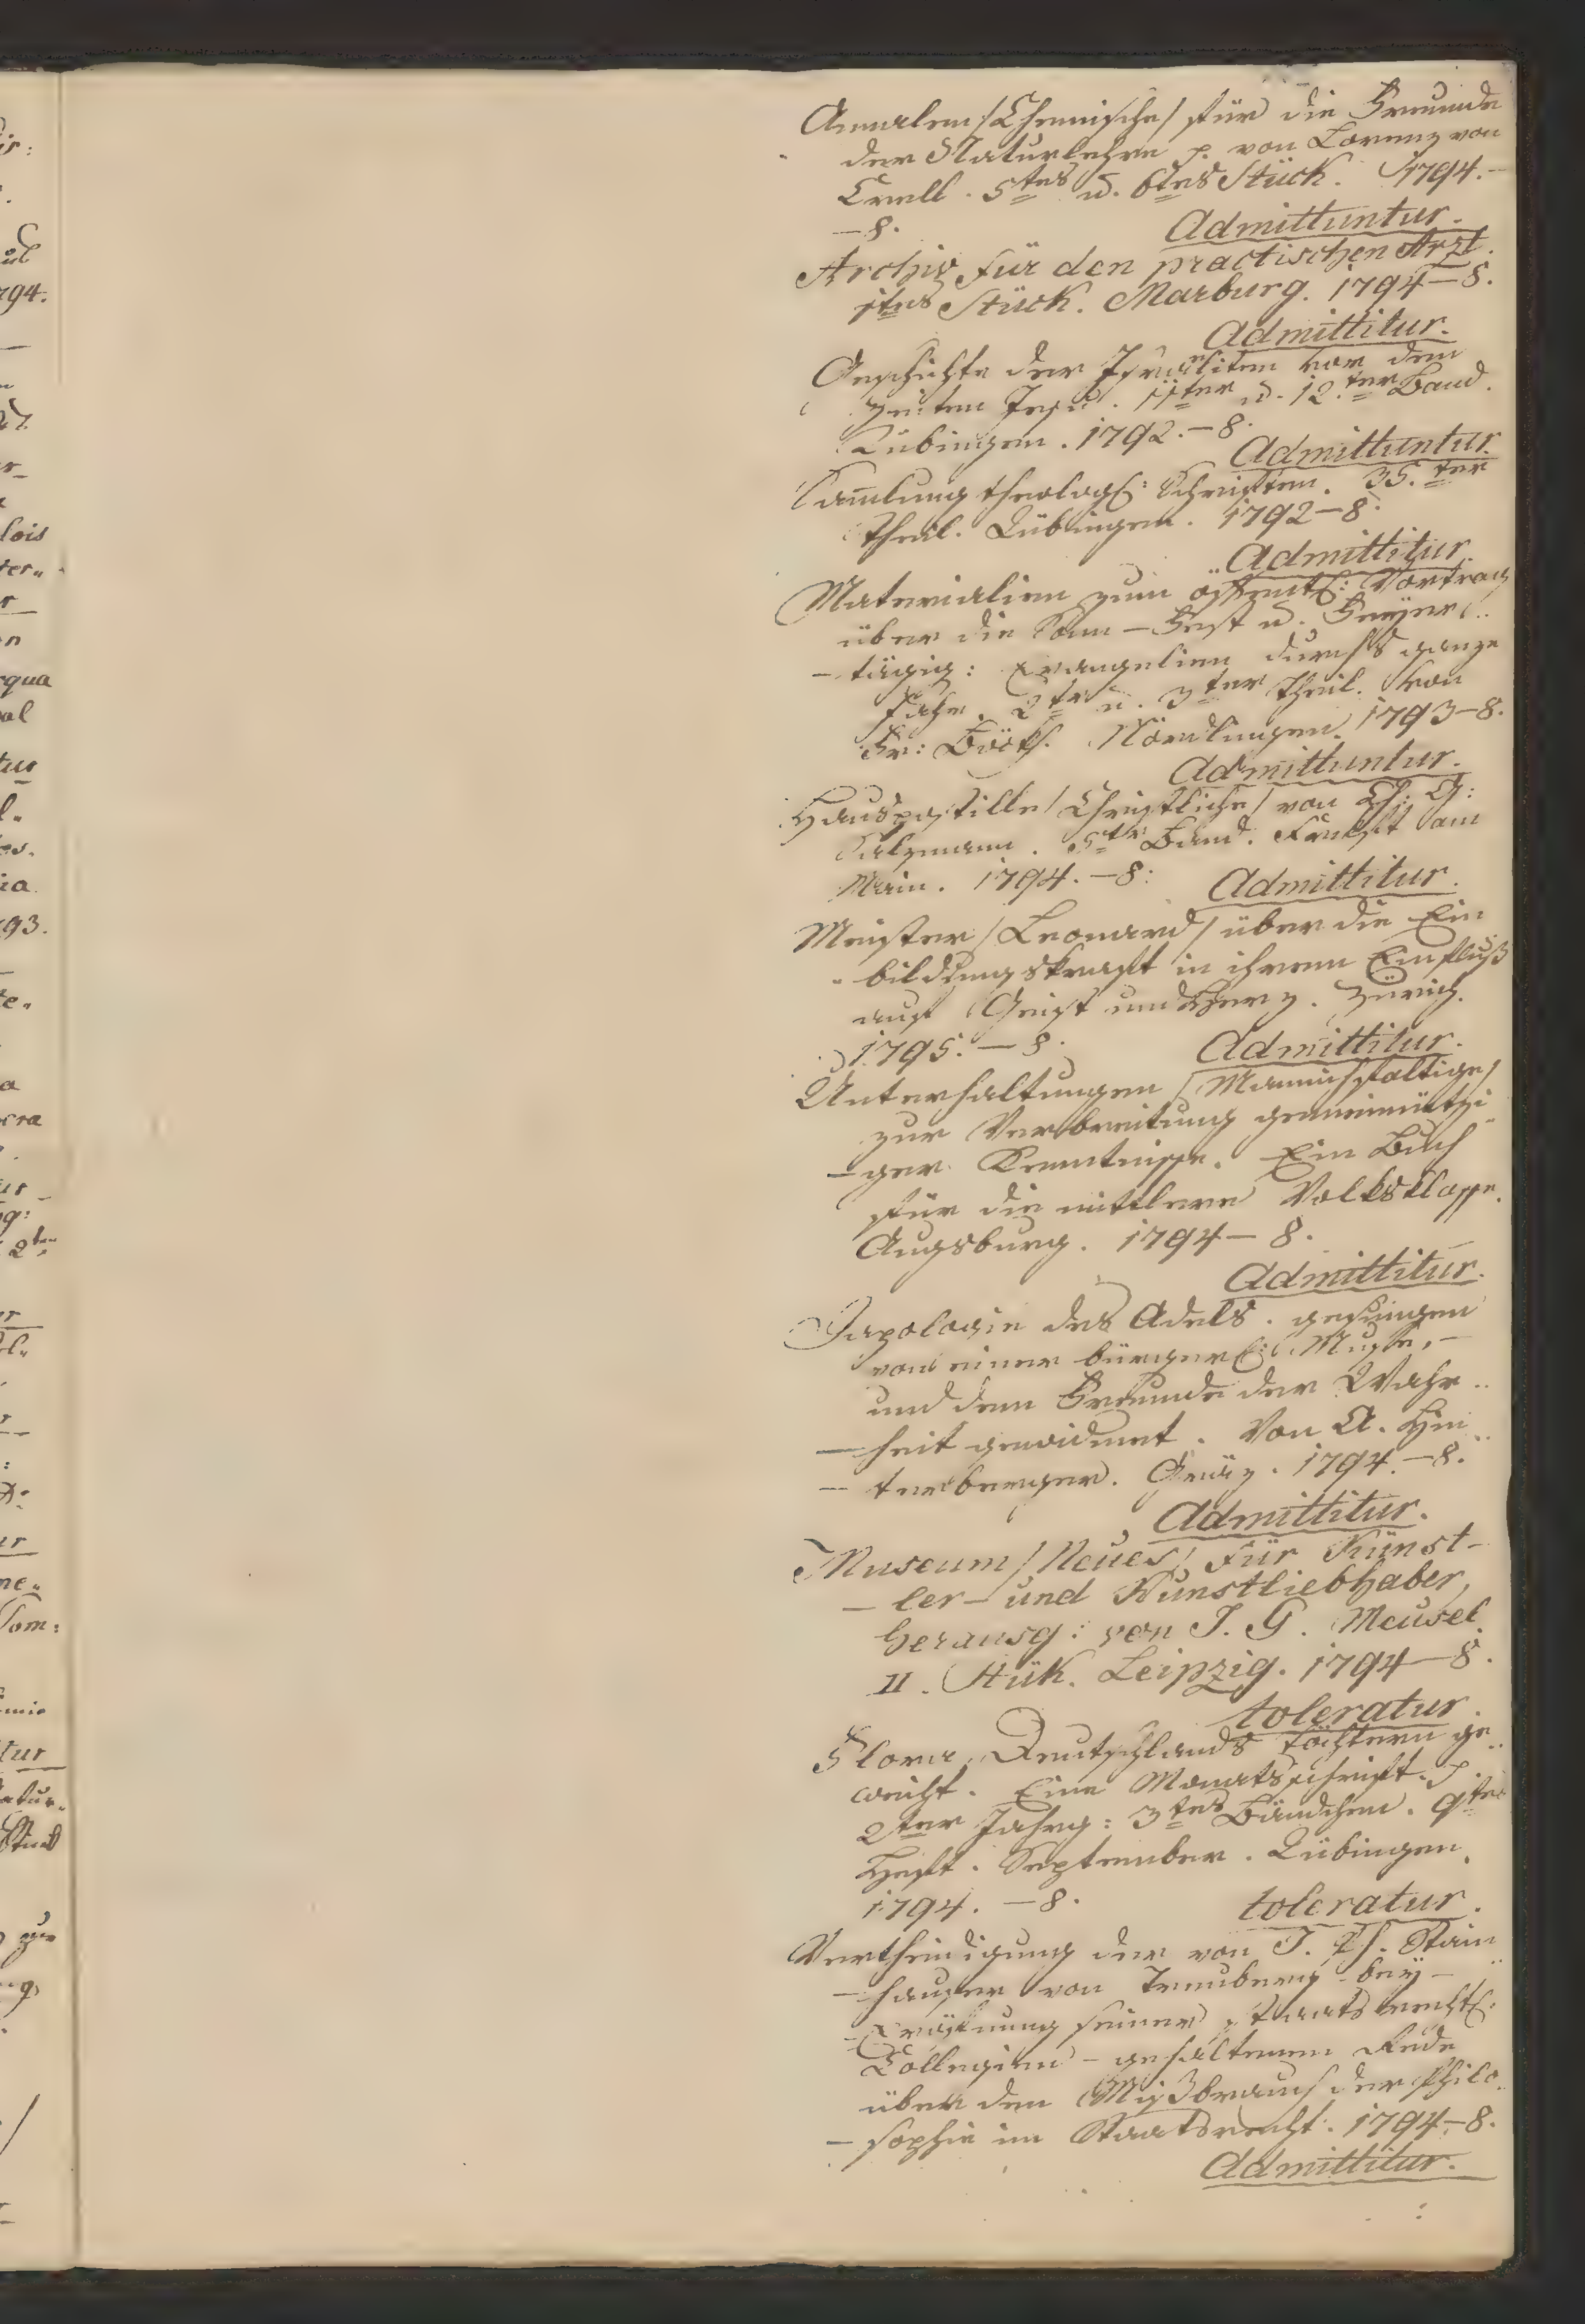 Annalen /Chemische/ für die Freunde
der Naturlehre p. von Lorenz von
Crell. 5tes u. 6tes Stück. 1794.-
-8.
Admittuntur.
Archiv für den practischen Arzt.
1tes Stück. Marburg. 1794-8.
Admittitur.
Geschichte der Israeliten vor den
Zeiten Jesu. 11ter u. 12.ter Band.
Tübingen. 1792.-8.
Admittuntur.
Samlung theologl: Schriften. 35.ter
Theil. Tübingen. 1792-8.
Admittitur.
Materialien zum öffentl: Vortrag
über die Sonn-Fest u. Feyer..
-tägig: Evangelien durchs ganze
Jahr. 2te u. 3ter Theil. von
Fr: Nördlingen. 1793-8.
Admittuntur.
Hauspostille /Christliche/ von Ch: G:
Salzmann. 5ter Band. Frankft am
Main. 1794.-8:
Admittitur.
Meister /Leonard/ über die Ein
-bildungskraft in ihrem Einfluß
auf Geist und Herz. Zürich.
1795.-8.
Admittitur.
Unterhaltungen /Mannichfaltige/
zur Verbreitung gemeinnützi
-ger Kenntnisse. Ein Buch
für die mittlere Volksklasse.
Augsburg. 1794-8.
Admittitur.
des Adels. gesungen
von einer bürgerl: Muse,-
und dem Freunde der Wahr..
-heit gewidmet. Von A. Hin..
-terberger. Gräz. 1794.-8.
Admittitur.
Museum /Neues/ für Künst-
-ler- und Kunstliebhaber,
herausg: von J. G. Meusel.
II. Stük. Leipzig. 1794-8.
toleratur.
Flora, Deutschlands Töchtern ge..
weiht. Eine Monatsschrift. p.
2ter Jahrg: 3tes Bändchen. 9tes
Heft. September. Tübingen.
1794.-8.
toleratur.
Vertheidigung der von J. Ph. Stain..
-hauser von Treuberg bey-
-Eröfnung seiner staatsrechtl:
Collegien - gehaltenen Rede
über den Mißbrauch der Philo..
-sophie im Staatsrecht. 1794-8.
Admittitur.